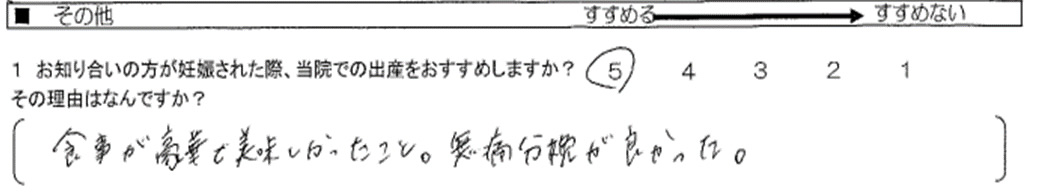 ■ その他 すすめる すすめない
1 お知り合いの方が妊娠された際、当院での出産をおすすめしますか？ 5 4 3 2 1
その理由はなんですか？
食事が豪華で美味しかったこと。無痛分娩が良かった。